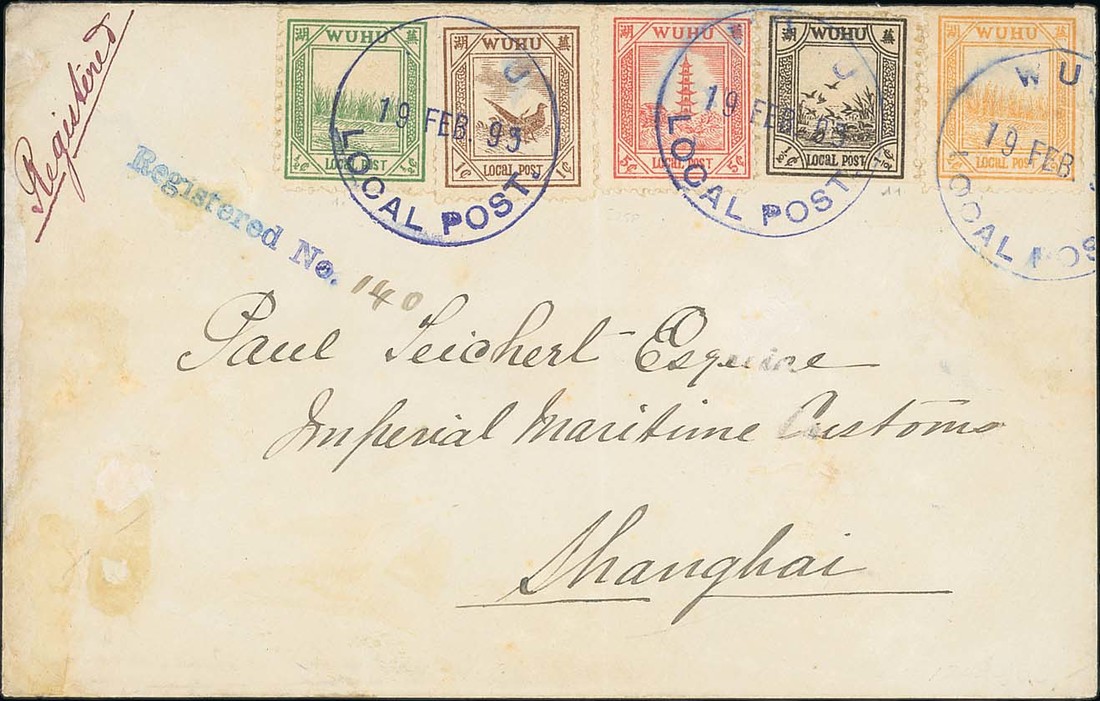 Registered
湖 WUHU 蕪
LOCAL POST
湖 WUHU 蕪
LOCAL POST
1¢ 1¢
湖 WUHU 蕪
LOCAL POST
5¢ 5¢
湖 WUHU 蕪
LOCAL POST
½¢ ½¢
湖 WUHU 蕪
LOCAL POST
19 FEB. 95
LOCAL POST.
19 FEB. 95
LOCAL POST.
WU
19 FEB
LOCAL POS
Registered No. 140
Paul Teichert Esquire
Imperial Maritime Customs
Shanghai